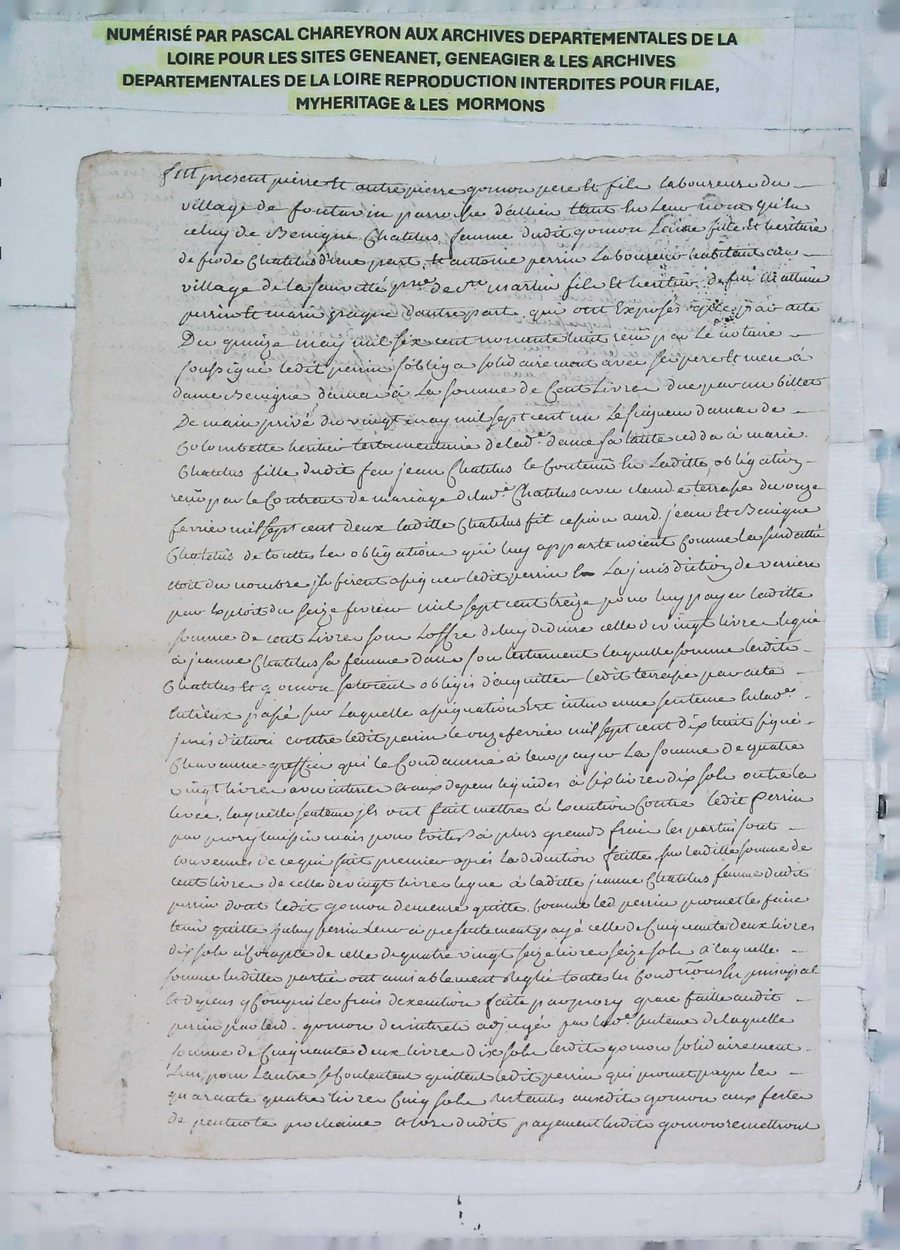 NUMÉRISÉ PAR PASCAL CHAREYRON AUX ARCHIVES DEPARTEMENTALES DE LA
LOIRE POUR LES SITES GENEANET, GENEAGIER & LES ARCHIVES
DEPARTEMENTALES DE LA LOIRE REPRODUCTION INTERDITES POUR FILAE,
MYHERITAGE & LES MORMONS
present pierre et autre pierre gomon pere et fils laboureurs du
village de parroisse d'allieu tant en leur nom qu'en
celuy de Benigne Chatelus femme dudit gomon fille et heritiere
de Chatelus d'une part, et antoine perrin Laboureur habitant au
village de la sauveté martin fils et heritier de feu
perrin et marie d'autre part, qui ont Exposés par acte
Du quinze may mil six cent nonante par Le notaire
soussigné ledit perrin s'obligea solidairement avec ses pere et mere à
dame Benigne damas à La somme de Cent Livres par un billet
De main privé du vingt may mil sept cent un Le seigneur damas de
Colombette heritier testamentaire de lad.e dame sa tante cedda à marie
Chatelus fille dudit feu jean Chatelus le Contenu en Laditte obligation
par le Contrat de mariage de lad.e Chatelus avec claude terrasse du onze
fevrier mil sept cent deux laditte Chatelus fit jean et Benigne
Chatelus de touttes les obligations qui luy appartenoient Comme la susdatté
etoit du nombre ils firent assigner ledit perrin La jurisdiction de verriere
par Exploit du seize fevrier mil sept cent treize pour luy payer laditte
somme de cent Livres sous L'offre de luy deduire celle de vingt livres
à jeanne Chatelus sa femme dans son testament laquelle somme lesdits
Chatelus et gomon obligés d'acquitter ledit terrasse par acte
passé sur Laquelle assignation Est intervenue sentence en lad.e
jurisdiction contre ledit perrin le onze fevrier mil sept cent dix huit signé
Chavanne greffier qui le Condamne à leur payer La somme de quatre
vingt livres avec interets et aux depens liquidés à six livres dix sols outre la
levée, laquelle sentence ils ont fait mettre à Execution Contre ledit Perrin
par mais pour Eviter à plus grands frais les parties sont
convenues de ce qui suit premier après la deduction faitte sur laditte somme de
cent livres de celle de vingt livres à laditte jeanne Chatelus femme dudit
perrin dont ledit gomon demeure quitte, Comme led perrin promet les faire
tenir quitte perrin Leur a presentement payé celle de Cinquante deux livres
dix sols à Compte de celle de quatre vingt seize livres seize sols à laquelle
somme lesdittes parties ont amiablement reglé toutes les en principal
et depens y Compris les frais d'execution faite par audit
perrin par led. gomon et interets adjugés par lad.e sentence de laquelle
somme de Cinquante deux livres dix sols lesdits gomon solidairement
L'un pour L'autre se Contentent quittent ledit perrin qui promet payer les
quarante quatre livres Cinq sols restants auxdits gomon aux festes
de pentecoste prochaine et lors dudit payement lesdits gomon remettront